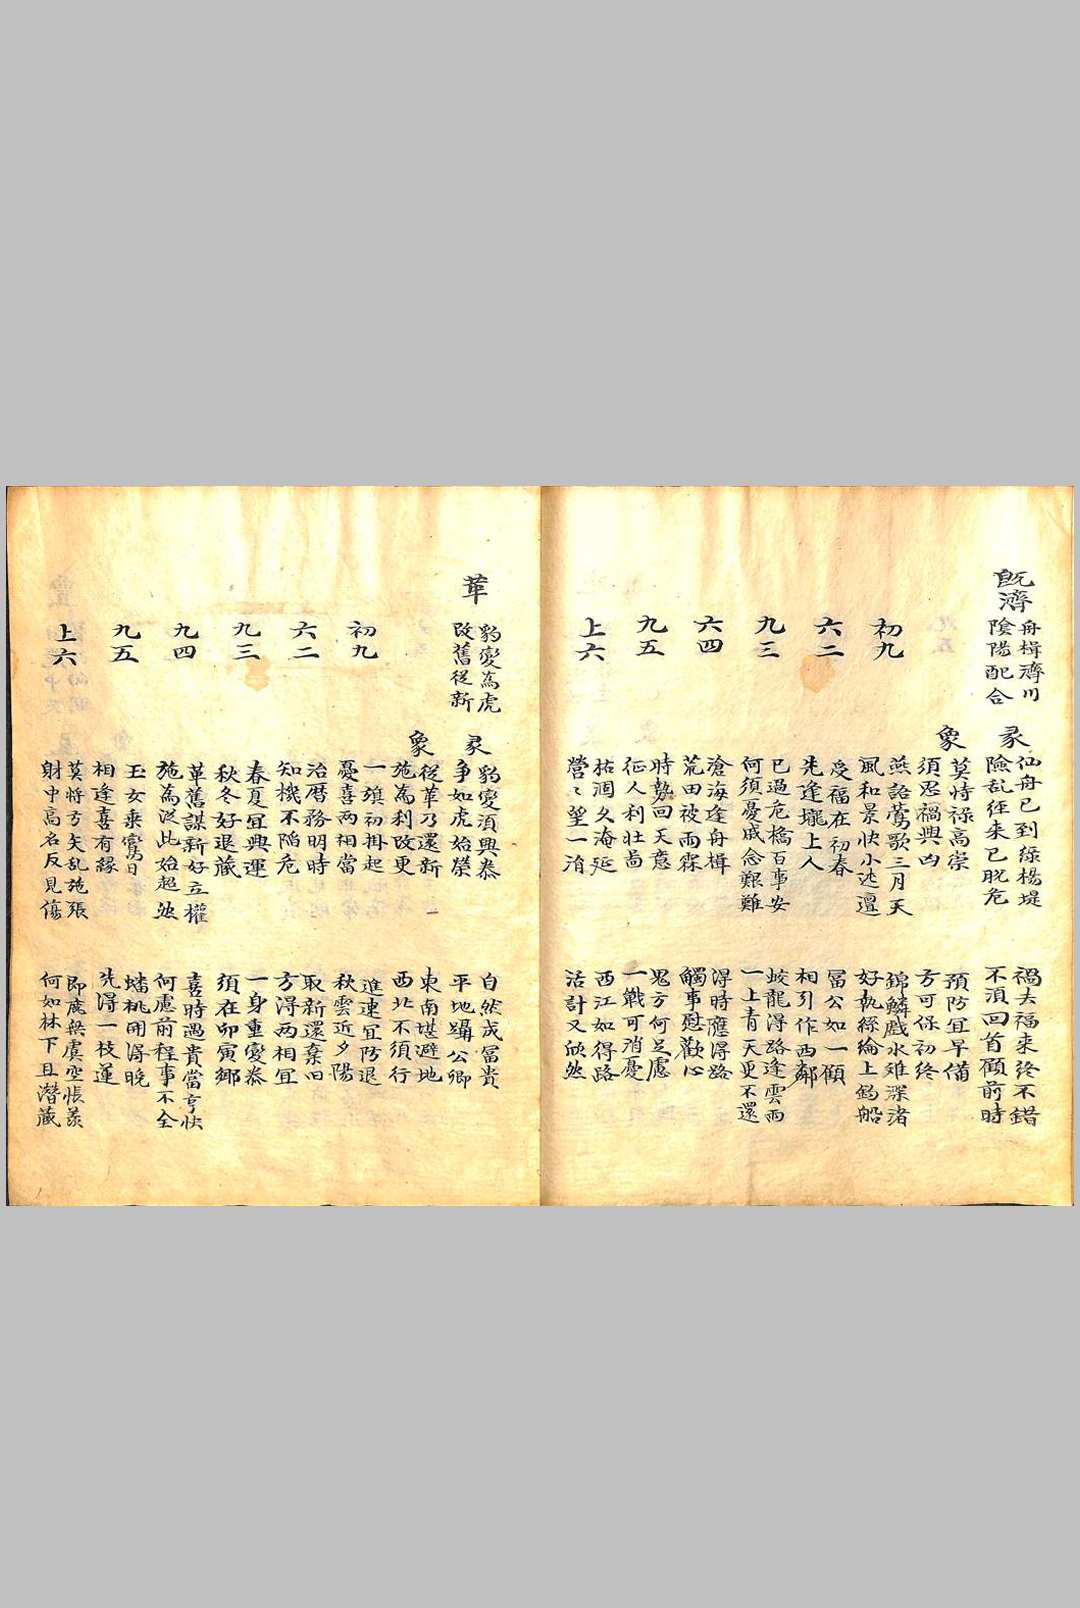 既濟
舟楫濟川
陰陽配合
彖
仙舟已到綠楊堤
險乱徑来已脱危
禍去福来終不錯
不須回首顧前時
象
莫恃禄高崇
須思禍與凶
預防宜早備
方可保初終
初九
燕語莺歌三月天
風和景快小迍邅
錦鱗戲水雖深渚
好執絲綸上釣船
六二
受福在初春
先逢壠上人
冨公如一顧
相引作西鄰
九三
已過危橋百事安
何須憂戚念艱難
蛟龍得路逢雲雨
一上青天更不還
六四
滄海逢舟楫
荒田被雨霖
得時應得路
觸事慰歡心
九五
時勢回天意
征人利壮啚
鬼方何足慮
一戰可消憂
上六
枯涸久淹延
營〻望一消
西江如得路
活計又欣然
革
豹變為虎
改舊從新
彖
豹變須興泰
爭如虎始榮
自然成冨貴
平地躡公卿
象
從革乃還新
施為利改更
東南堪避地
西北不須行
初九
一㫋初掛起
憂喜两相當
進速宜防退
秋雲近夕陽
六二
治曆務明時
知機不陷危
取新還棄旧
方得两相宜
九三
春夏宜興運
秋冬好退藏
一身重變泰
須在卯寅鄉
九四
革舊謀新好立權
施為従此始超然
喜時遇貴當亨快
何慮前程事不全
九五
玉女乘鸞日
相逢喜有緣
蟠桃開得晚
先得一枝蓮
上六
莫将弓矢乱施張
射中高名反見傷
即鹿無虞空悵羨
何如林下且潛藏